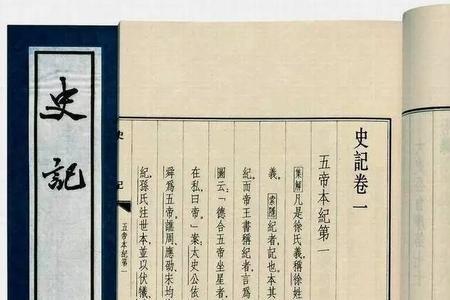 史記
史記卷一
五帝本紀第一
集解凡是徐氏義稱徐姓
義。索隱紀者記也本其
紀而帝王書稱紀者言爲
圖云:「德合五帝坐星者
在私曰帝。」案:太史公依
舜爲五帝譙周應劭宋均
紀孫氏注世本並以伏犧
史記
五帝本紀第一